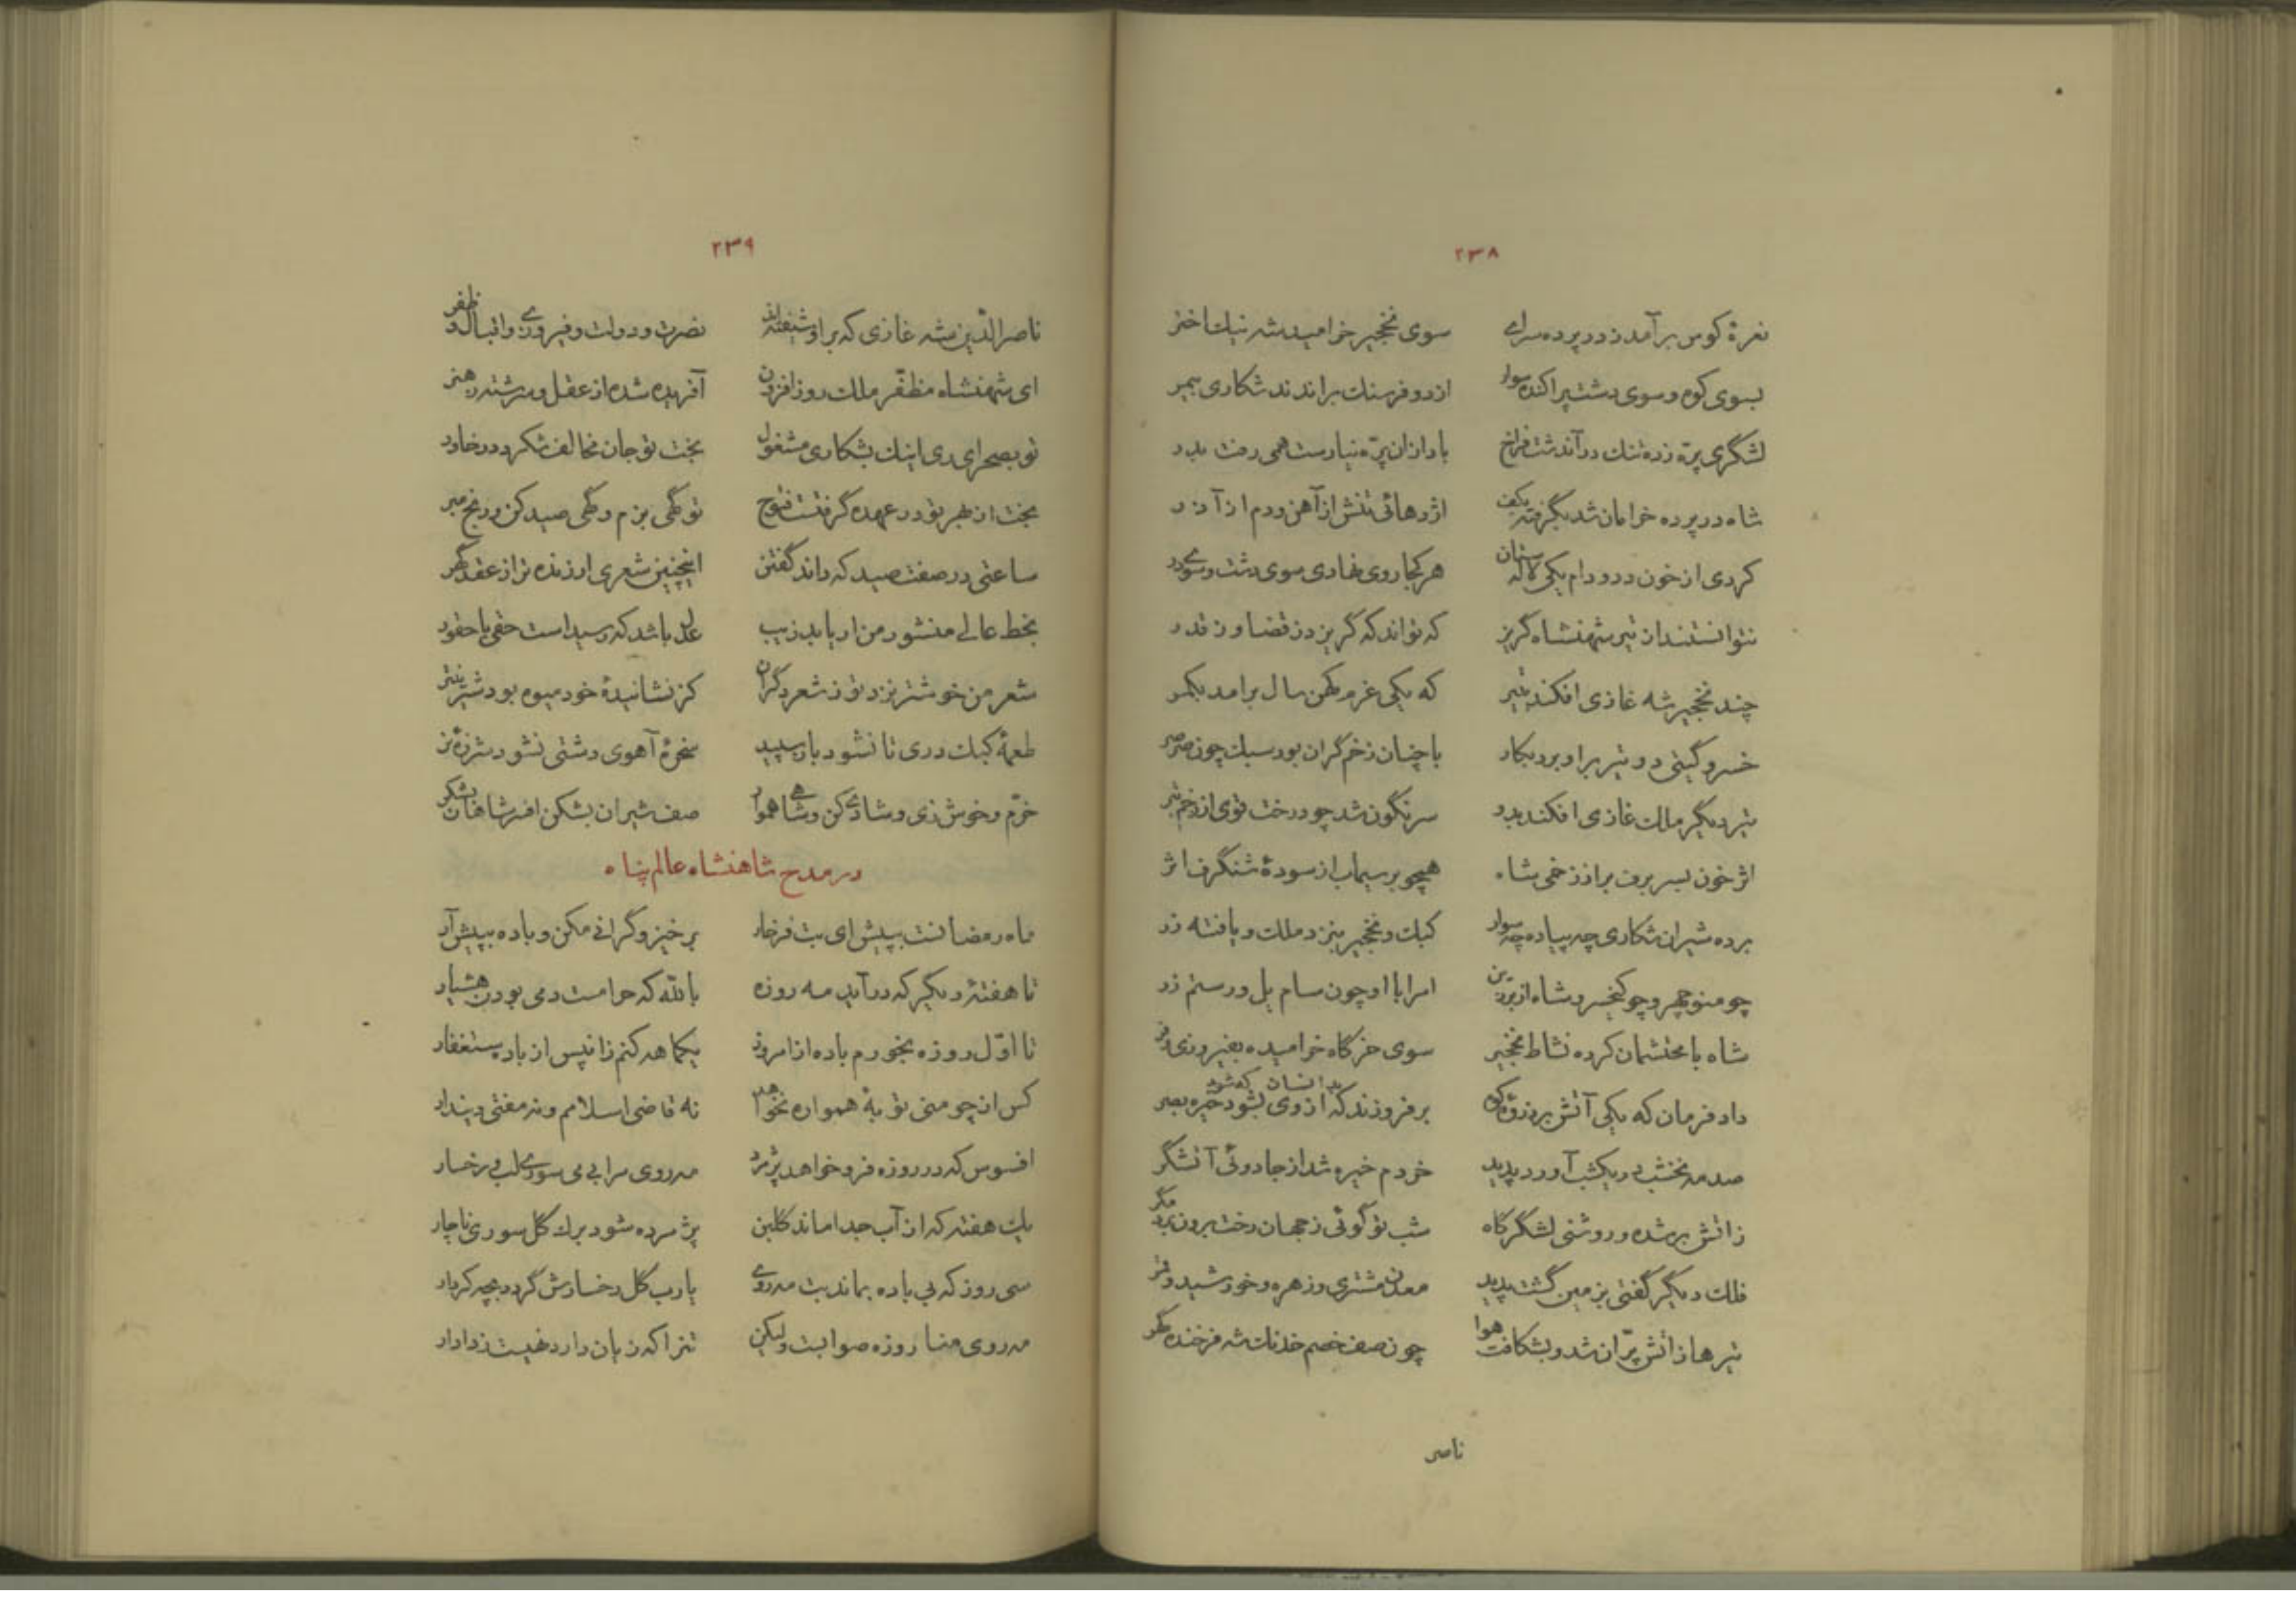 ۲۳۸
نعرهٔ کوس برآمد ز در پرده سرای سوی نخجیر خرامید شه نیک اختر
بسوی کوه و سوی دشت پراکنده سوار از دو فرسنک براندند شکاری بیمر
لشگری پره زده تنک در آندشت فراخ باد ازان پره نیارست همی رفت بدر
شاه در پرده خرامان شد بگرفته بکف اژدهائی تنش از آهن و دم از آذر
کردی از خون دد و دام یکی لاله ستان هر کجا روی نهادی سوی دشت و سوی در
نتوانستند از تیر شهنشاه گریز که تواند که گریزد ز قضا و ز قدر
چند نخجیر شه غازی افکند بتیر که یکی غرم کهن سال برامد بکمر
خسرو گیتی دو تیر براو برد بکار با چنان زخم گران بود سبک چون صرصر
تیر دیگر ملک غازی افکند بدو سرنگون شد چو درخت قوی از زخم تبر
اثر خون بسر برف بر از زخمی شاه همچو بر سیماب از سودهٔ شنگرف اثر
برده شیران شکاری چه پیاده چه سوار کبک و نخجیر بنزد ملک و یافته زر
چو منوچهر و چو کیخسرو شاه از بر زین امرا با او چون سام یل و رستم زر
شاه با محتشمان کرده نشاط نخجیر سوی خرگاه خرامیده بفیروزی و فر
داد فرمان که یکی آتش بر ذروهٔ کوه برفروزند که از وی بشود خیره بصر
بدانسان که شود
صد مه نخشب در یکشب آورد پدید خردم خیره شد از جادوئی آتشگر
ز آتش برشده و روشنی لشگرگاه شب تو گوئی ز جهان رخت برون برد مگر
فلک دیگر گفتی بزمین گشت پدید معدن مشتری و زهره و خورشید و قمر
تیرها ز آتش پران شد و بشکافت هوا چون صف خصم خدنک شه فرخنده گهر
ناصر
۲۳۹
ناصر الدین شه غازی که براو شیفته‌اند نصرت و دولت و فیروزی و اقبال و ظفر
ای شهنشاه مظفر ملک روز افزون آفریده شده از عقل و سرشته ز هنر
تو بصحرای ری اینک بشکاری مشغول بخت تو جان مخالف شکرد در خاور
بخت از بهر تو در عهده گرفتست فتوح تو گهی بزم و گهی صید کن و رنج مبر
ساعتی در صفت صید که داند گفتن اینچنین شعری ارزنده تر از عقد گهر
بخط عالی منشور من ار یابد زیب عدل باشد که رسید است حقی با حقور
شعر من خوشتر نزد تو ز شعر دگران کز نشانیدهٔ خود میوه بود شیرینتر
طعمهٔ کبک دری تا نشود باز سپید سخرهٔ آهوی دشتی نشود شرزهٔ نر
خرم و خوش زی و شادی کن و شاهی هموار صف شیران بشکن افسر شاهان بشکر
در مدح شاهنشاه عالم پناه
ماه رمضانست بپیش ای بت فرخار برخیز و گرانی مکن و باده بپیش آر
تا هفتهٔ دیگر که درآید مه روزه بالله که حرامست دمی بودن هشیار
تا اول روزه بخورم باده از امروز یکماهه کنم زانپس از باده ستغفار
کس از چو منی توبهٔ همواره نخواهد نه قاضی اسلامم و نه مفتی دیندار
افسوس که در روزه فرو خواهد پژمرد مه روی مرا بی می سوری لب و رخسار
یک هفته که از آب جدا ماند گلبن پژمرده شود برک گل سوری ناچار
سی روز که بی باده بماند بت مه روی یارب گل رخسارش گردد بچه کردار
مه روی منا روزه صوابست ولیکن تنرا که زیان دارد نهیست ز دادار